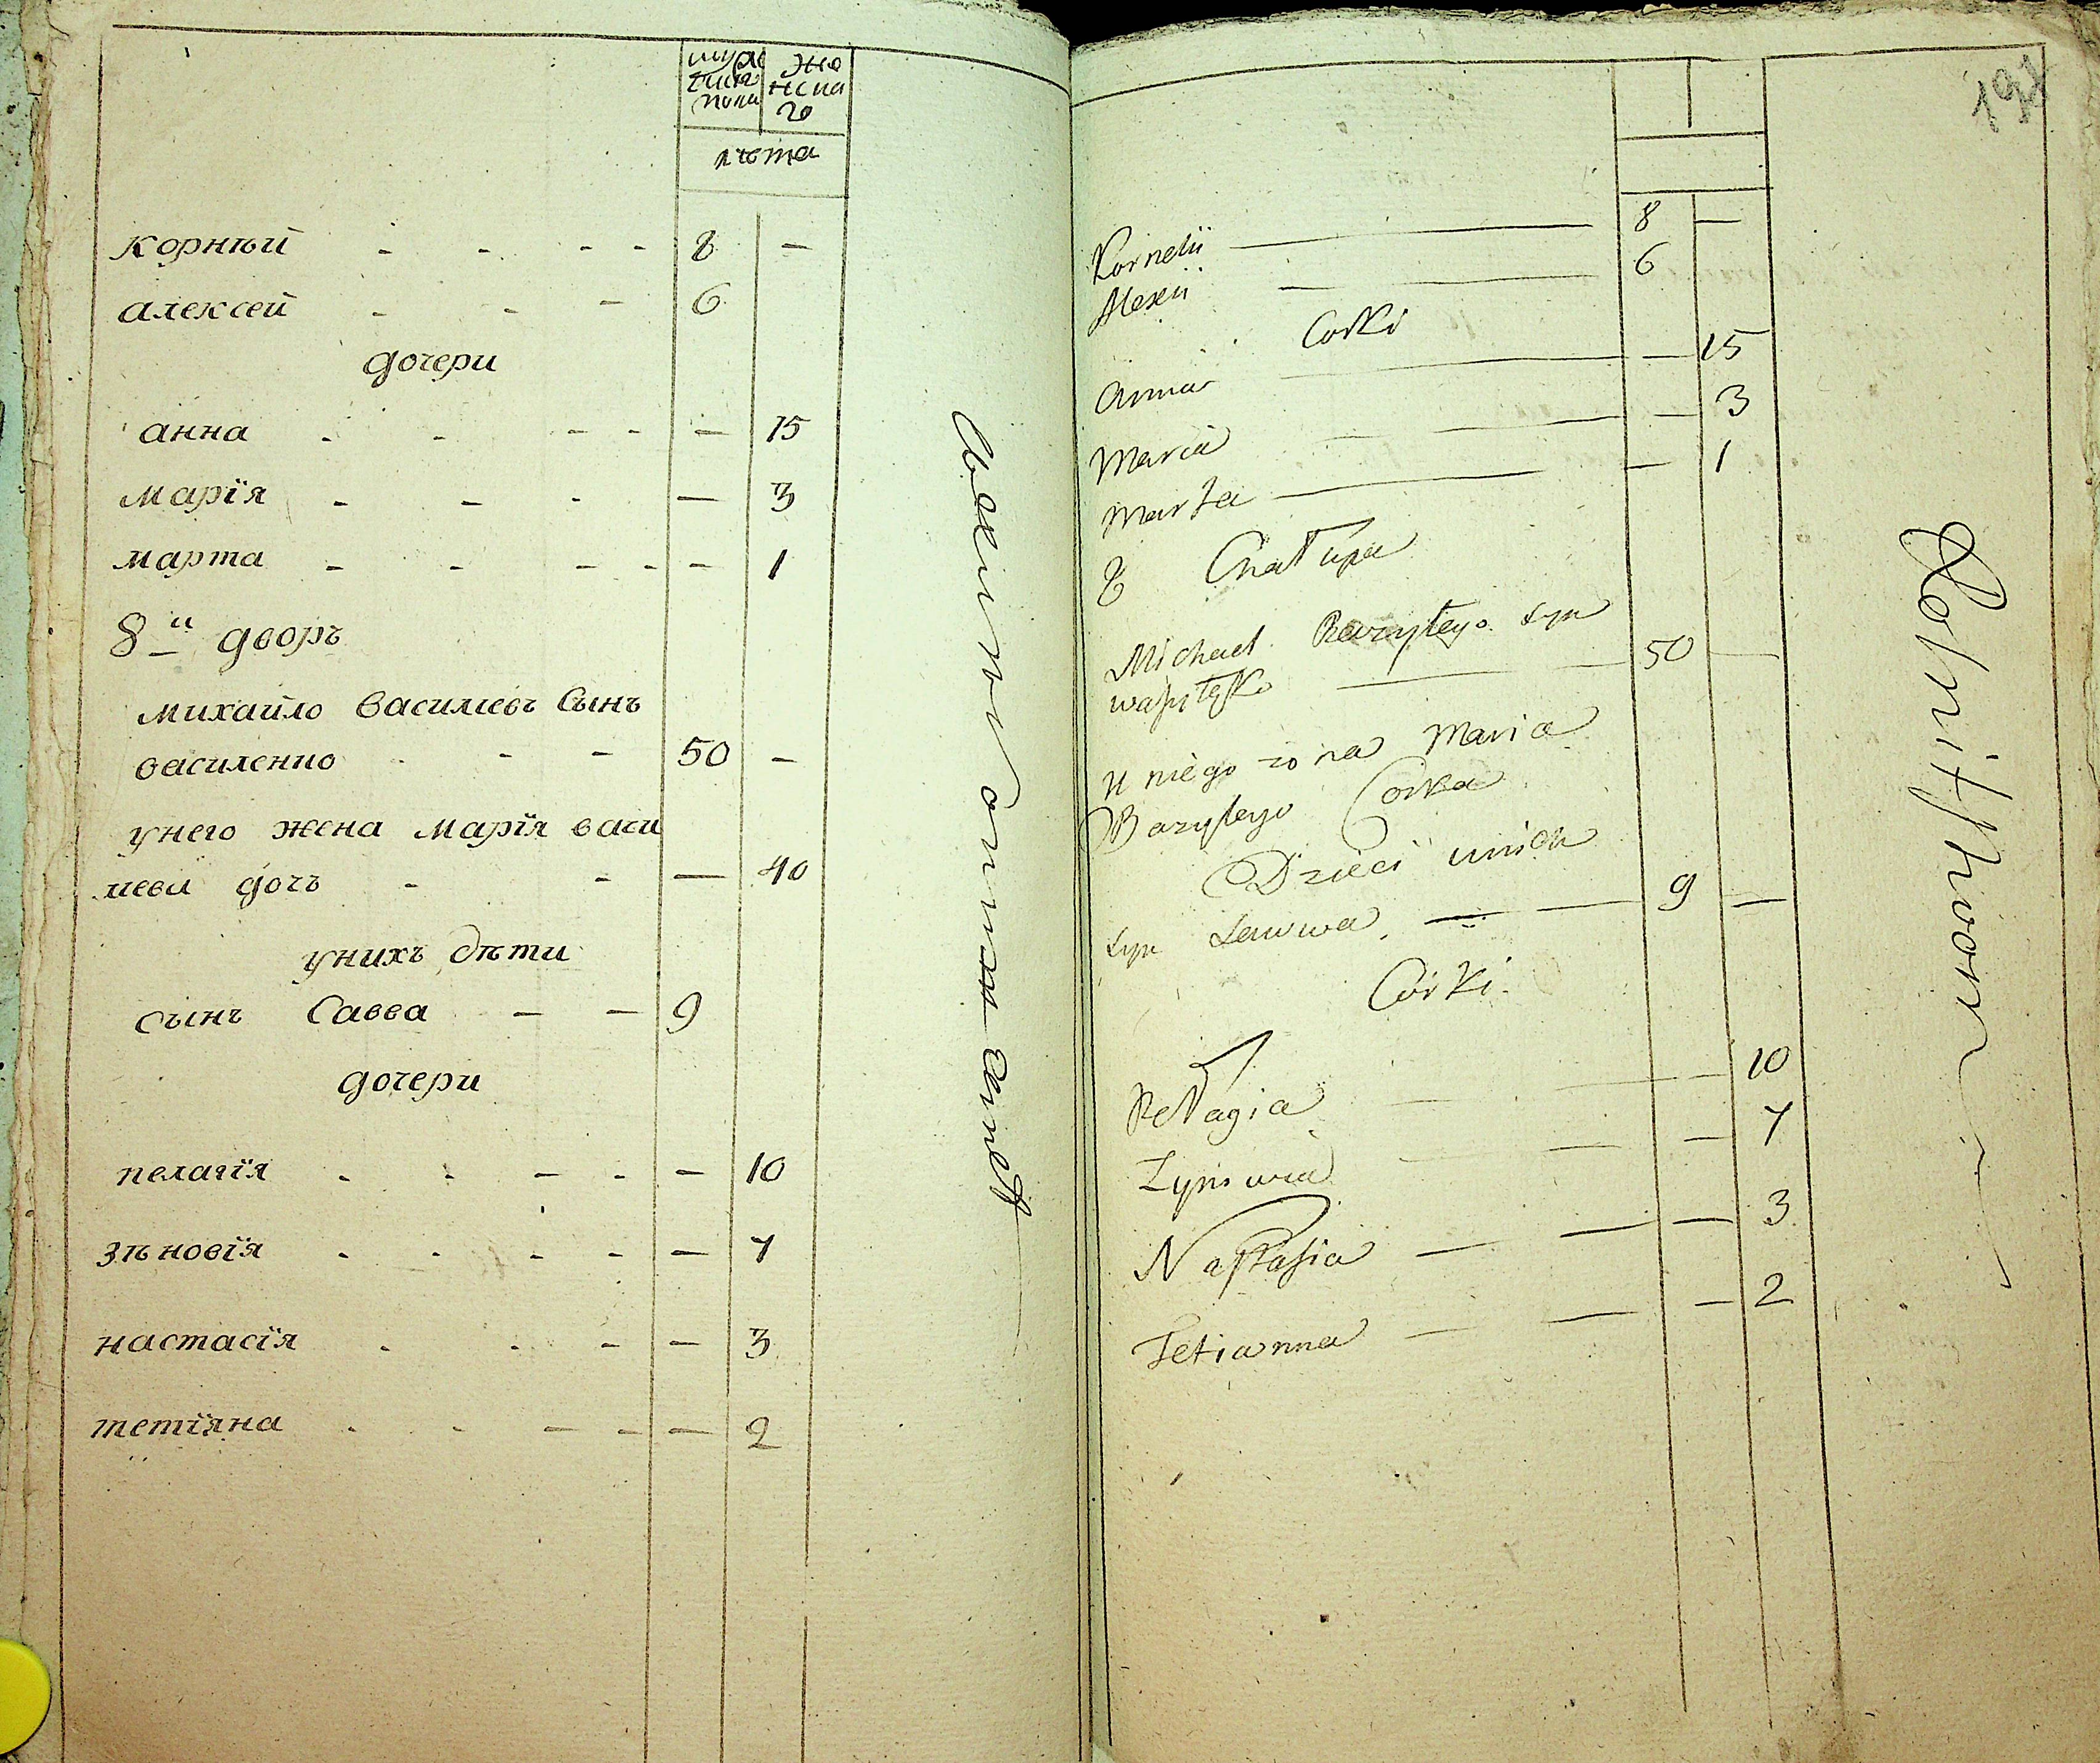 мужеска пола
женска
го
лѣта
корнѣй - - - - 8 -
алексей - - - 6
дочери
анна - - - - - 15
марїя - - - - 3
марта - - - - - 1
8й дворъ
михайло василиевъ сынъ
василенко - - 50 -
унего жена марїя васи
лиева дочъ - - - 40
унихъ дѣти
сынъ савва - - 9
дочери
пелагїя - - - - - 10
зѣновїя - - - - - 7
настасїя - - - - 3
тетїяна - - - - - 2
191
Kornelii — 8 —
Alexii — 6
Corki
Anna — — 15
Maria — — 3
Marta — — 1
8 Chałupa
Michael Bazylego syn
— 50 —
u niego zona Maria
Bazylego Corka
Dzieci unich
syn Sawwa — 9 —
Córki
Pelagia — — 10
Zyniowia — — 7
Nastasia — — 3
Tetianna — — 2